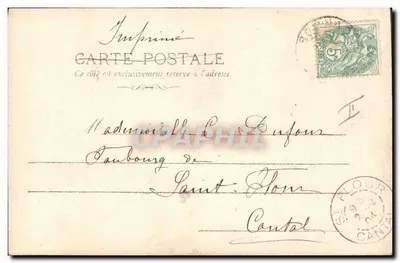 Imprimé
CARTE POSTALE
Ce côté est exclusivement réservé à l'adresse
5
II
Mademoiselle L Dufour
Faubourg de
Saint-Flour
Cantal
ST FLOUR
04
CANTAL